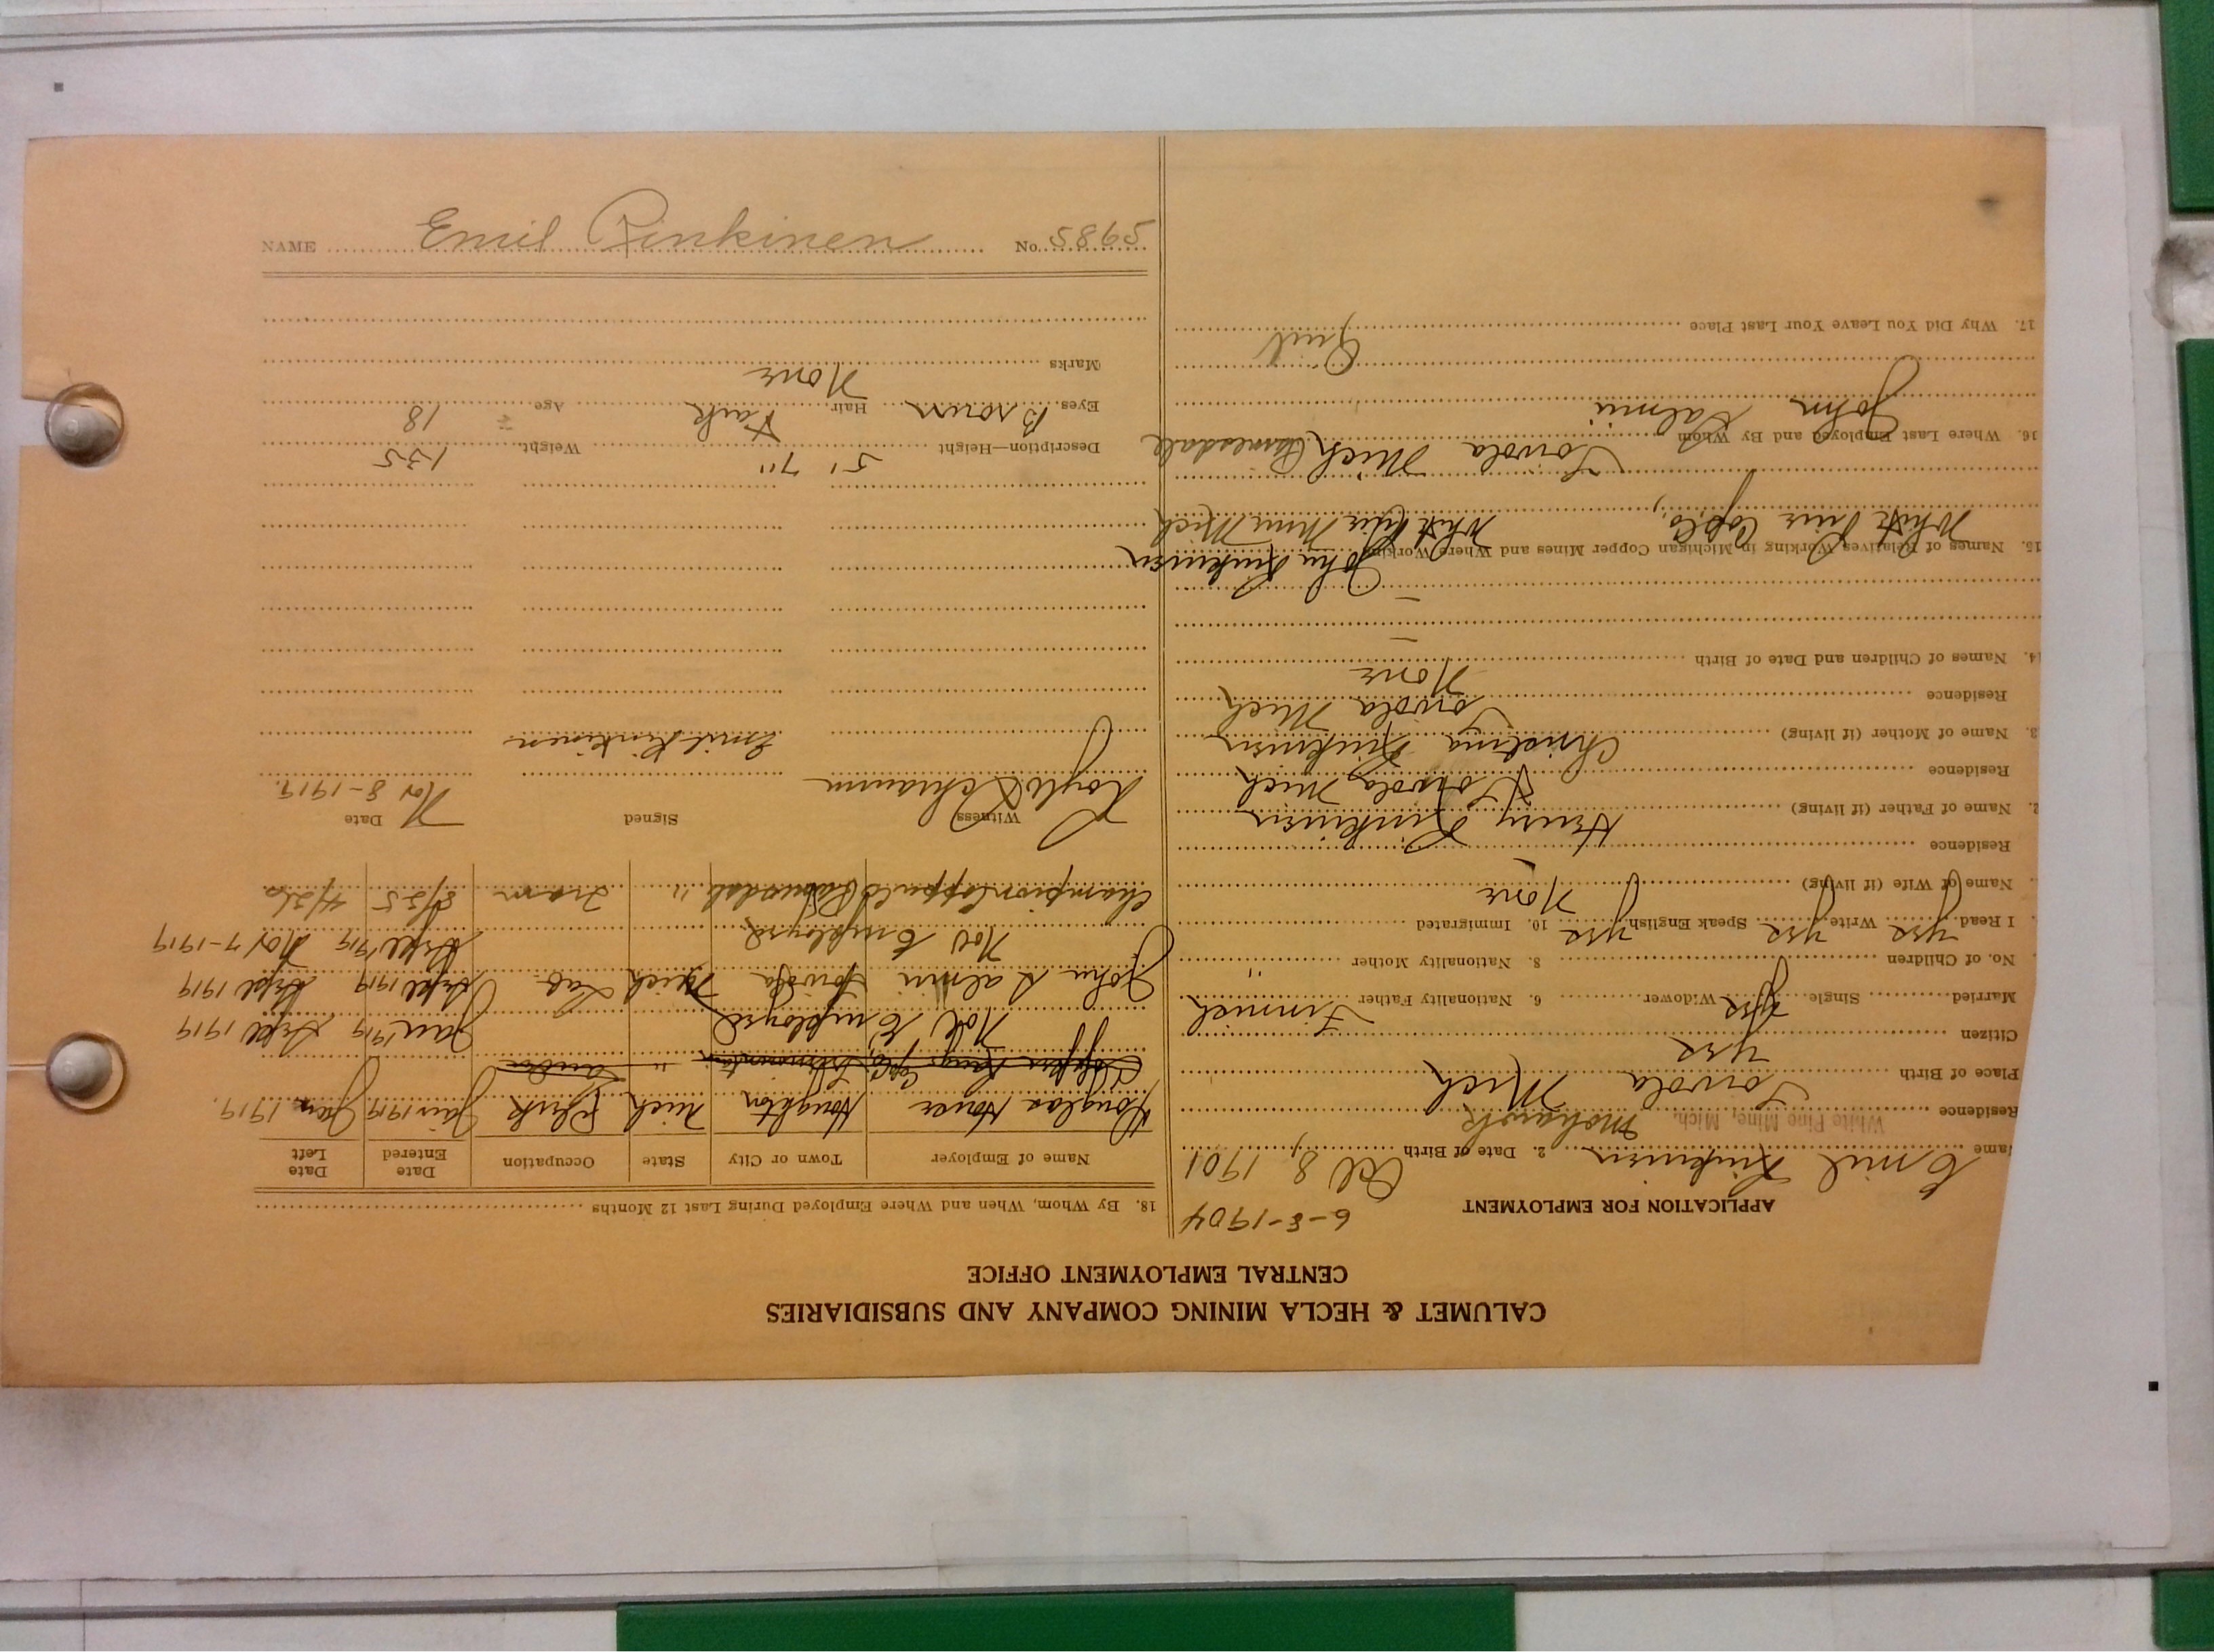 CALUMET & HECLA MINING COMPANY AND SUBSIDIARIES
CENTRAL EMPLOYMENT OFFICE
APPLICATION FOR EMPLOYMENT
6-8-1904
ame Emil Rinkinen 2. Date of Birth Oct 8, 1901
Residence White Pine Mine, Mich. Mohawk
Place of Birth Toivola Mich
Citizen yes
Married Single yes Widower 6. Nationality Father Finnish
No. of Children 8. Nationality Mother "
I Read yes Write yes Speak English yes 10. Immigrated
Name of Wife (if living) None
Residence -
2. Name of Father (if living) Henry Rinkinen
Residence Toivola Mich
3. Name of Mother (if living) Christina Rinkinen
Residence Toivola Mich
14. Names of Children and Date of Birth None
-
-
15. Names of Relatives Working in Michigan Copper Mines and Where Working John Rinkinen
White Pine Cop. Co., White Pine Mine Mich
16. Where Last Employed and By Whom Toivola Mich (Painesdale
John Salmi
17. Why Did You Leave Your Last Place Quit
18. By Whom, When and Where Employed During Last 12 Months
Name of Employer Town or City State Occupation Date Entered Date Left
Douglas House Houghton Mich Clerk Jan 1919 Jan, 1919.
Copper Range Cop. Co. "
Not Employed Jan 1919 Sept 1919
John Salmi Toivola Mich Lab Sept 1919 Sept 1919
Not Employed Sept 1919 Nov 7-1919
Champion Copper Co Painesdale " Tram 8/25 4/26
Witness Signed Date
Emil Rinkinen Nov 8-1919.
Description—Height 5' 7" Weight 135
Eyes Brown Hair Dark Age 18
Marks None
NAME Emil Rinkinen No. 5865